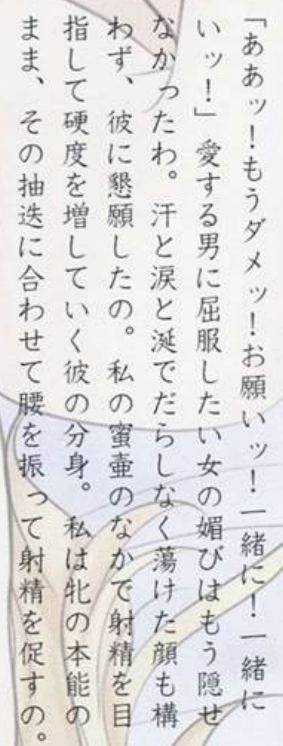 「ああッ！もうダメッ！お願いッ！一緒に！一緒に
いッ！」愛する男に屈服したい女の媚びはもう隠せ
なかったわ。汗と涙と涎でだらしなく蕩けた顔も構
わず、彼に懇願したの。私の蜜壷のなかで射精を目
指して硬度を増していく彼の分身。私は牝の本能の
まま、その抽迭に合わせて腰を振って射精を促すの。